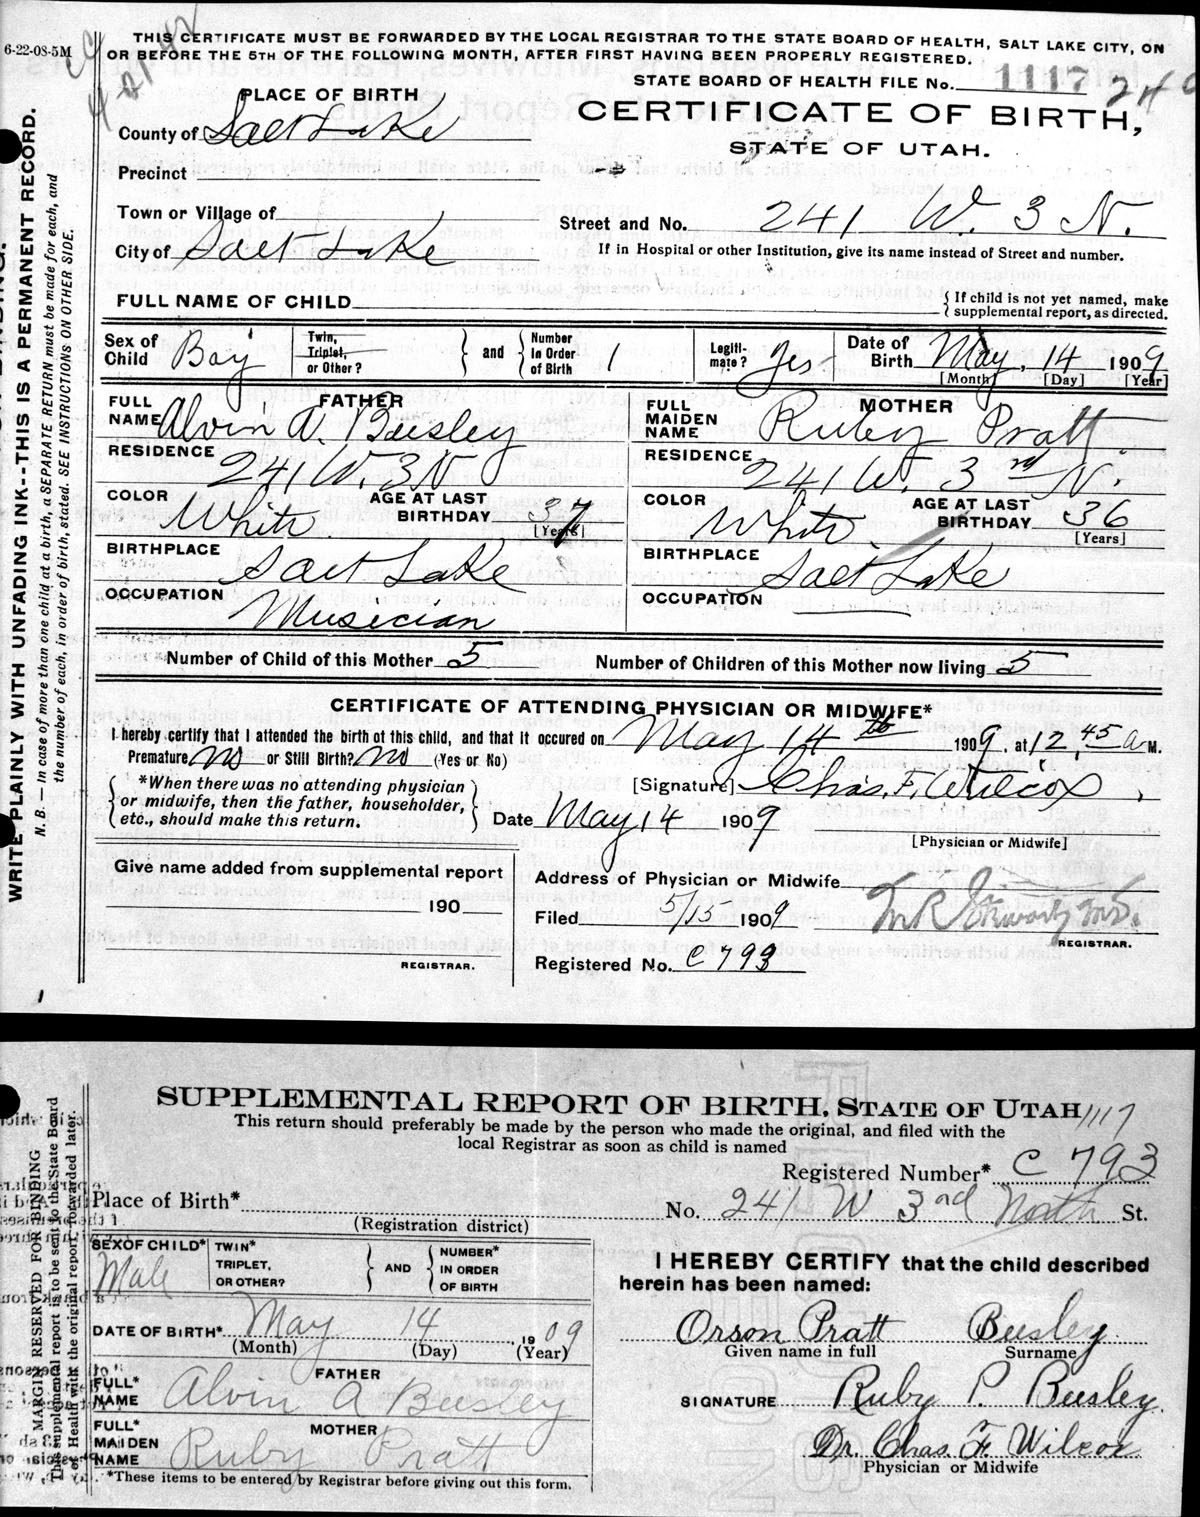 6-22-08-5M
THIS CERTIFICATE MUST BE FORWARDED BY THE LOCAL REGISTRAR TO THE STATE BOARD OF HEALTH, SALT LAKE CITY, ON
OR BEFORE THE 5TH OF THE FOLLOWING MONTH, AFTER FIRST HAVING BEEN PROPERLY REGISTERED.
STATE BOARD OF HEALTH FILE No. 1117 240
PLACE OF BIRTH
CERTIFICATE OF BIRTH,
STATE OF UTAH.
County of Salt Lake
Precinct
Town or Village of
Street and No. 241 W. 3 N.
City of Salt Lake
If in Hospital or other Institution, give its name instead of Street and number.
FULL NAME OF CHILD
{ If child is not yet named, make
supplemental report, as directed.
Sex of Child Boy
Twin, Triplet, or Other? } and { Number in Order of Birth 1
Legiti-mate? Yes
Date of Birth May 14 1909
[Month] [Day] [Year]
FATHER
FULL NAME Alvin A. Beesley
RESIDENCE 241 W. 3 N
COLOR White
AGE AT LAST BIRTHDAY 37
[Years]
BIRTHPLACE Salt Lake
OCCUPATION Musician
MOTHER
FULL MAIDEN NAME Ruby Pratt
RESIDENCE 241 W. 3rd N.
COLOR White
AGE AT LAST BIRTHDAY 36
[Years]
BIRTHPLACE Salt Lake
OCCUPATION
Number of Child of this Mother 5 Number of Children of this Mother now living 5
CERTIFICATE OF ATTENDING PHYSICIAN OR MIDWIFE*
I hereby certify that I attended the birth of this child, and that it occured on May 14th 1909, at 12,45 a M.
Premature no or Still Birth? no (Yes or No)
*When there was no attending physician
or midwife, then the father, householder,
etc., should make this return.
[Signature] Chas. F. Wilcox
Date May 14 1909
[Physician or Midwife]
Give name added from supplemental report
190
REGISTRAR.
Address of Physician or Midwife
Filed 5/15 1909
REGISTRAR.
Registered No. C 793
WRITE PLAINLY WITH UNFADING INK--THIS IS A PERMANENT RECORD.
N. B. — In case of more than one child at a birth, a SEPARATE RETURN must be made for each, and
the number of each, in order of birth, stated. SEE INSTRUCTIONS ON OTHER SIDE.
SUPPLEMENTAL REPORT OF BIRTH. STATE OF UTAH 1117
This return should preferably be made by the person who made the original, and filed with the
local Registrar as soon as child is named
Registered Number* C 793
Place of Birth* No. 241 W 3nd North St.
(Registration district)
SEX OF CHILD* Male
TWIN* TRIPLET, OR OTHER? } AND { NUMBER* IN ORDER OF BIRTH
DATE OF BIRTH* May 14, 1909
(Month) (Day) (Year)
FATHER
FULL* NAME Alvin A Beesley
MOTHER
FULL* MAIDEN NAME Ruby Pratt
*These items to be entered by Registrar before giving out this form.
I HEREBY CERTIFY that the child described
herein has been named:
Orson Pratt Beesley
Given name in full Surname
SIGNATURE Ruby P. Beesley.
Dr. Chas. F. Wilcox
Physician or Midwife
MARGIN RESERVED FOR BINDING
This supplemental report is to be sent to the State Board
of Health with the original report, if forwarded later.